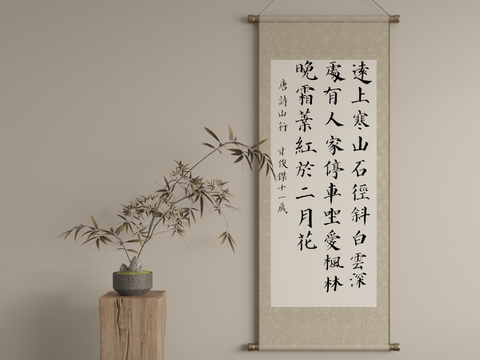 遠上寒山石徑斜白雲深
處有人家停車坐愛楓林
晚霜葉紅於二月花
唐詩山行 甘俊傑十一歲